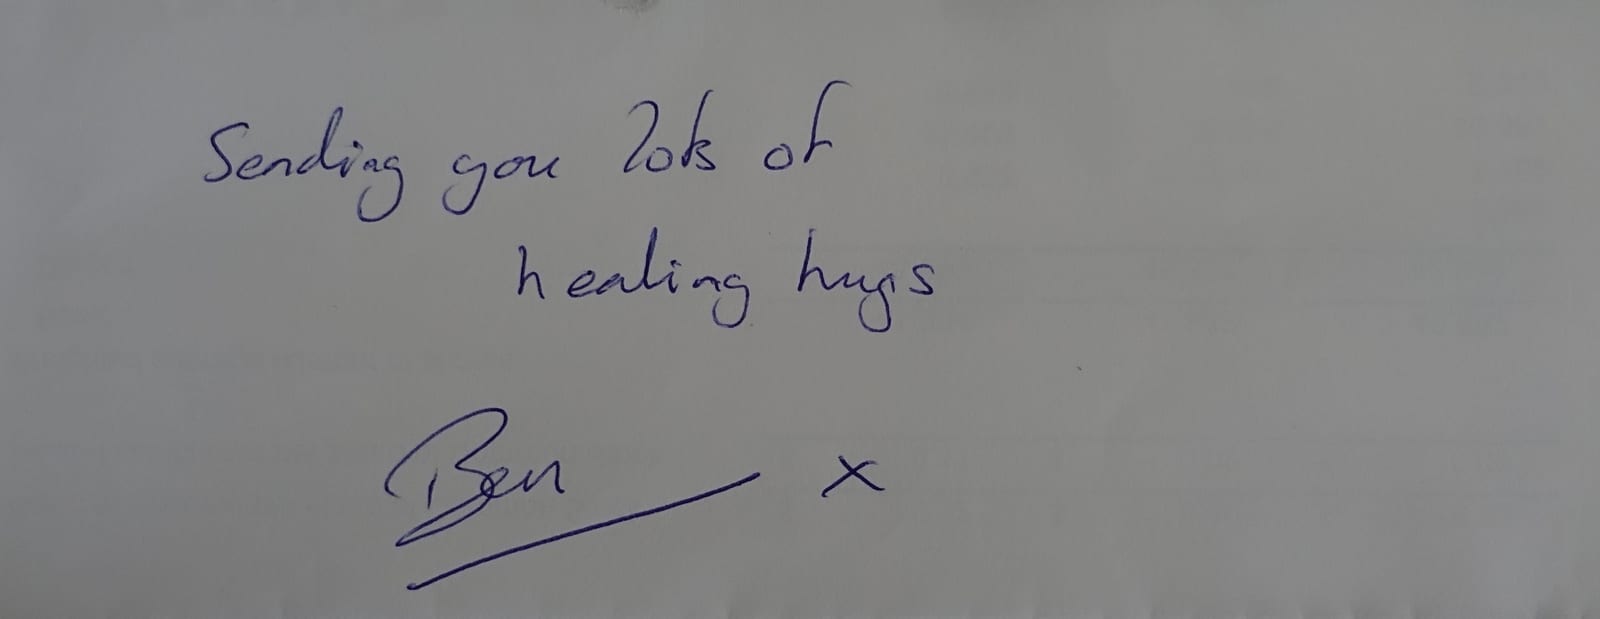 Sending you lots of
healing hugs
Ben x